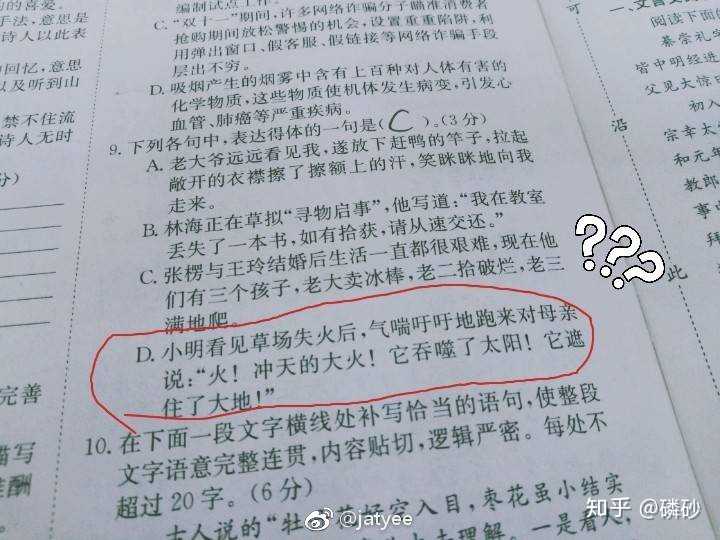 的喜爱。
手法,意思是
诗人以此表
回忆,意思
以及听到山
禁不住流
诗人无时
分)
完善
描写
佳酬
编制试点工作。
C.“双十一”期间,许多网络诈骗分子瞄准消费者
抢购期间放松警惕的机会,设置重重陷阱,利
用弹出窗口、假客服、假链接等网络诈骗手段
层出不穷。
D.吸烟产生的烟雾中含有上百种对人体有害的
化学物质,这些物质使机体发生病变,引发心
血管、肺癌等严重疾病。
9.下列各句中,表达得体的一句是(C)。(3分)
A.老大爷远远看见我,遂放下赶鸭的竿子,拉起
敞开的衣襟擦了擦额上的汗,笑眯眯地向我
走来。
B.林海正在草拟“寻物启事”,他写道:“我在教室
丢失了一本书,如有拾获,请从速交还。”
C.张楞与王玲结婚后生活一直都很艰难,现在他
们有三个孩子,老大卖冰棒,老二拾破烂,老三
满地爬。
D.小明看见草场失火后,气喘吁吁地跑来对母亲
说:“火!冲天的大火!它吞噬了太阳!它遮
住了大地!”
10.在下面一段文字横线处补写恰当的语句,使整段
文字语意完整连贯,内容贴切,逻辑严密。每处不
超过20字。(6分)
古人说的“牡 花好空入目,枣花虽小结实
理解。一是看人,
???
可
沿
此
阅读下面
綦崇礼
皆中明经进
父见大惊
初入
宗幸太
和元年
教郎
事
拜
@jatyee
知乎 @磷砂